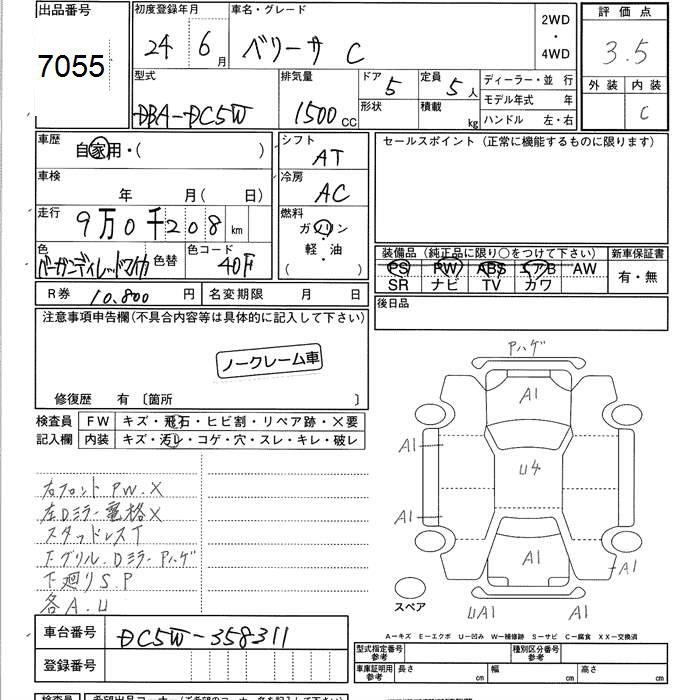 出品番号
7055
初度登録年月
24 6月
車名・グレード
ベリーサ C
2WD
・
4WD
評価点
3.5
外装 内装
C
型式
DBA-DC5W
排気量
1500 CC
ドア 5
形状
定員 5人
積載 kg
ディーラー・並行
モデル年式 年
ハンドル 左・右
車歴
自家用・( )
車検
年 月(日)
走行
9万0千208 km
色
バーガンディレッドマイカ
色替
色コード
40F
シフト
AT
冷房
AC
燃料
ガソリン
・
軽・油
( )
セールスポイント(正常に機能するものに限ります)
装備品(純正品に限り○をつけて下さい)
PS PW ABS エアB AW
SR ナビ TV カワ
新車保証書
有・無
R券 10,800 円
名変期限 月 日
後日品
注意事項申告欄(不具合内容等は具体的に記入して下さい)
ノークレーム車
修復歴 有 〔箇所 〕
検査員
記入欄
FW キズ・飛石・ヒビ割・リペア跡・×要
内装 キズ・汚レ・コゲ・穴・スレ・キレ・破レ
右フロント PW.X
左Dミラー電格X
スタッドレスT
F.グリル.Dミラー Pハゲ
下廻りS.P
各A.U
車台番号
DC5W-358311
登録番号
Pハゲ
A1
A1
U4
A1
A1
A1
UA1
A1
スペア
A－キズ E－エクボ U－凹み W－補修跡 S－サビ C－腐食 XX－交換済
型式指定番号
参考
種別区分番号
参考
車庫証明用
参考
長さ cm
幅 cm
高さ cm